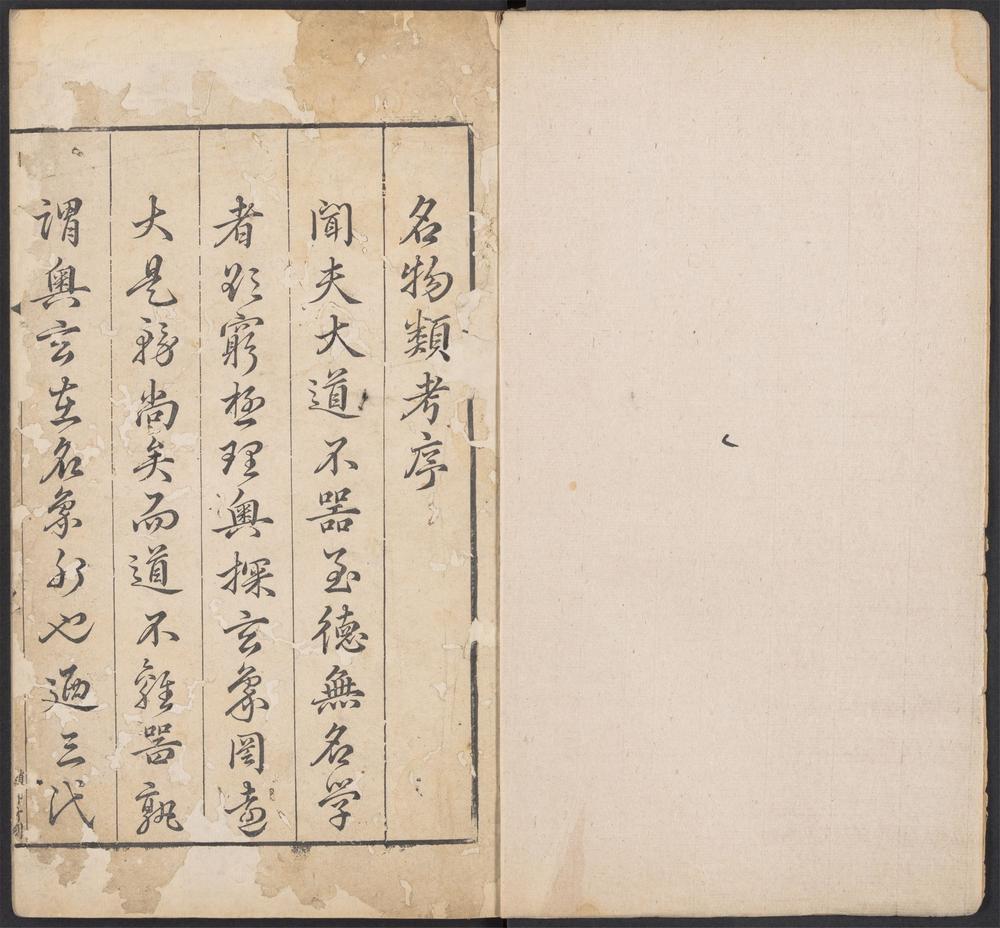 名物類考序
聞夫大道不器至德無名学
者欲窮極理奥探玄象罔遠
大是務尚矣而道不離器孰
謂奥玄在名象外也迺三代